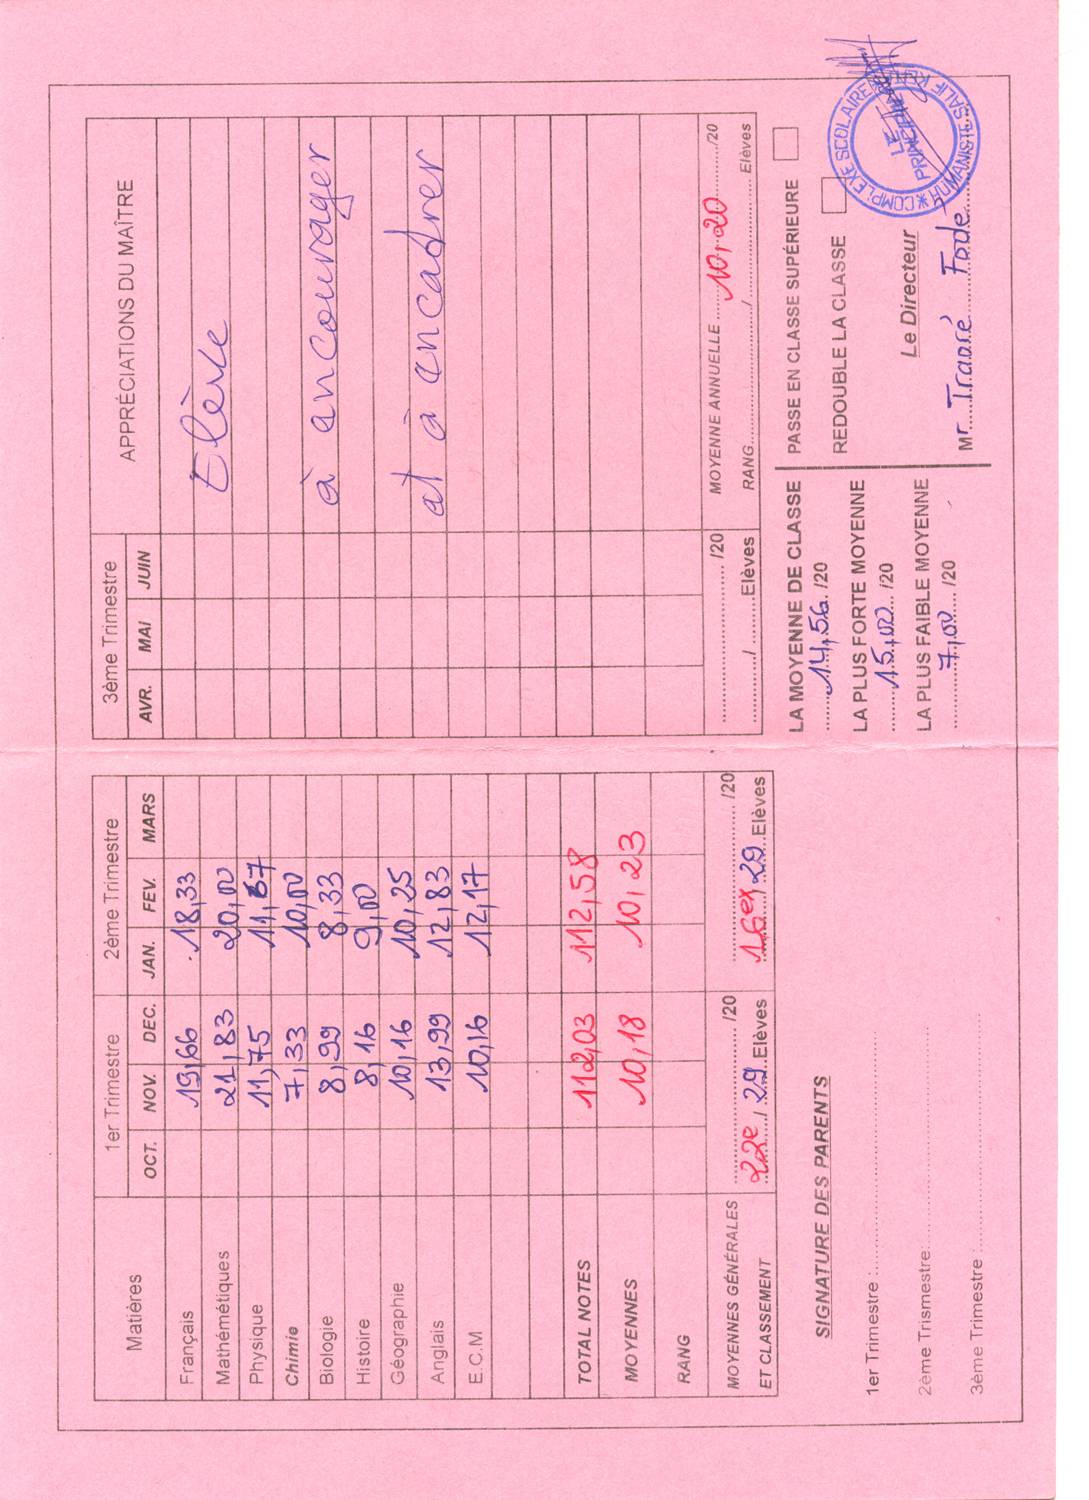 Matières 1er Trimestre 2ème Trimestre
OCT. NOV. DEC. JAN. FEV. MARS
Français 19,66 18,33
Mathématiques 21,83 20,00
Physique 11,75 11,67
Chimie 7,33 10,00
Biologie 8,99 8,33
Histoire 8,16 9,00
Géographie 10,16 10,25
Anglais 13,99 12,83
E.C.M 10,16 12,17
TOTAL NOTES 112,03 112,58
MOYENNES 10,18 10,23
RANG
MOYENNES GÉNÉRALES ............ /20 ............ /20
ET CLASSEMENT 22e / 29 Elèves 16ex / 29 Elèves
SIGNATURE DES PARENTS
1er Trimestre :
2ème Trismestre :
3ème Trimestre :
3ème Trimestre APPRÉCIATIONS DU MAÎTRE
AVR. MAI JUIN
Elève
à ancourager
at à ancadrer
............ /20 MOYENNE ANNUELLE 10,20 /20
....../...... Elèves RANG ....../...... Elèves
LA MOYENNE DE CLASSE PASSE EN CLASSE SUPÉRIEURE
14,56 /20
LA PLUS FORTE MOYENNE REDOUBLE LA CLASSE
15,00 /20
LA PLUS FAIBLE MOYENNE Le Directeur
7,00 /20 Mr Traoré Fodé
COMPLEXE SCOLAIRE
HUMANISTE SALIF
LE
PRINCIPAL